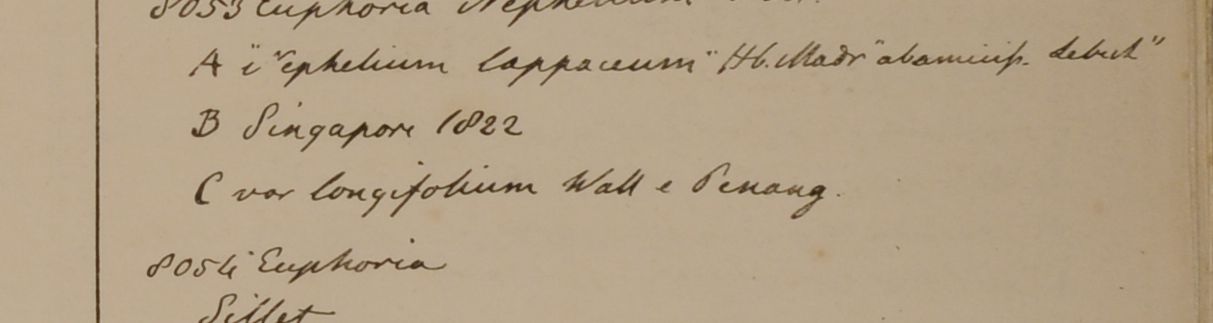 8053 Euphoria Nephelium
A "Nephelium lappaceum" Hb. Madr "ab amiciss.
B Singapore 1822
C var longifolium Wall e Penang.
8054 Euphoria
Sillet